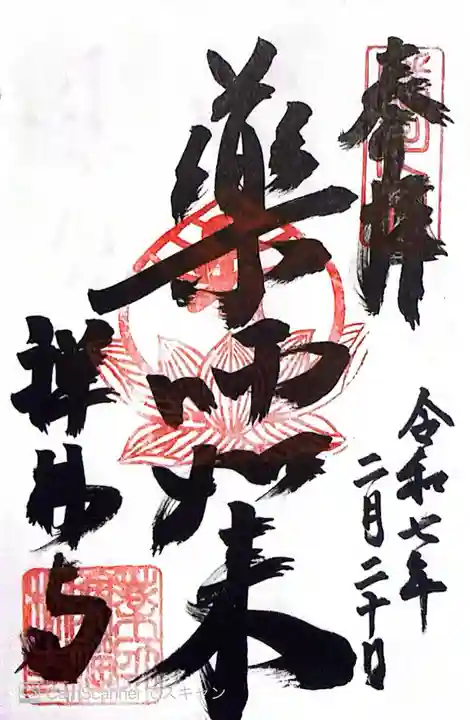 奉拝
令和七年
二月二十日
薬師如来
禅佛寺
CamScanner でスキャン